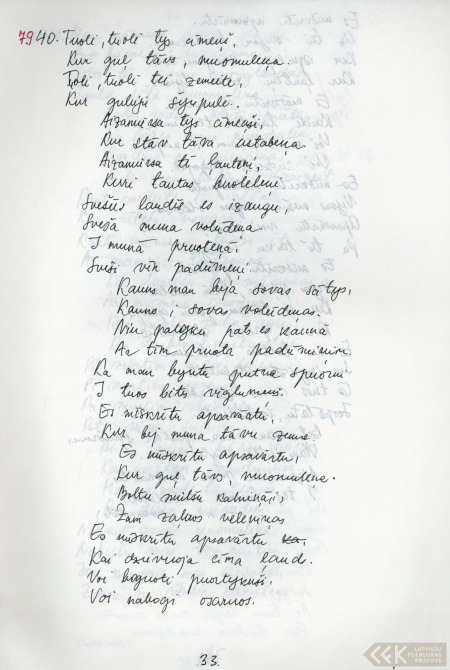 7940. Tuoli, tuoli tys cīmeņš,
Kur guļ tāvs, muomuleņa.
Tuoli, tuoli tei zemeite,
Kur guļ šyupulī.
Aizamiersa tys cīmeņš,
Kur stāv tāva ustabeņa.
Aizamiersa tī ļauteņi,
Kuri tautas buoleleni
Svešūs ļaudīs es izaugu,
Svešā muna volūdeņa.
I munā pruoteņā,
Sveši vīn padūmeņi.
Kauns man beja sovas sātys,
Kauns i sovas volūdenas.
Niu palyku pats es kaunā
Ar tīm pruota padūmim.
Ka man byutu putna spuorni
I tuos bites vīglumeņš.
Es nūskrītu apsavārtu,
Kur bij muna tāvu zeme
Es nūskrītu apsavārtu,
Kur guļ tāvs, muomuleņa.
Boltu smilšu kalniņā,
Zam zaļuos veleniņas
Es nūskrītu apsavārtu
Kai dzeivuoja cīma ļauds.
Voi boguoti puortykuši,
Voi nabogi osaruos.
33.
LATVIEŠU
FOLKLORAS
KRĀTUVE